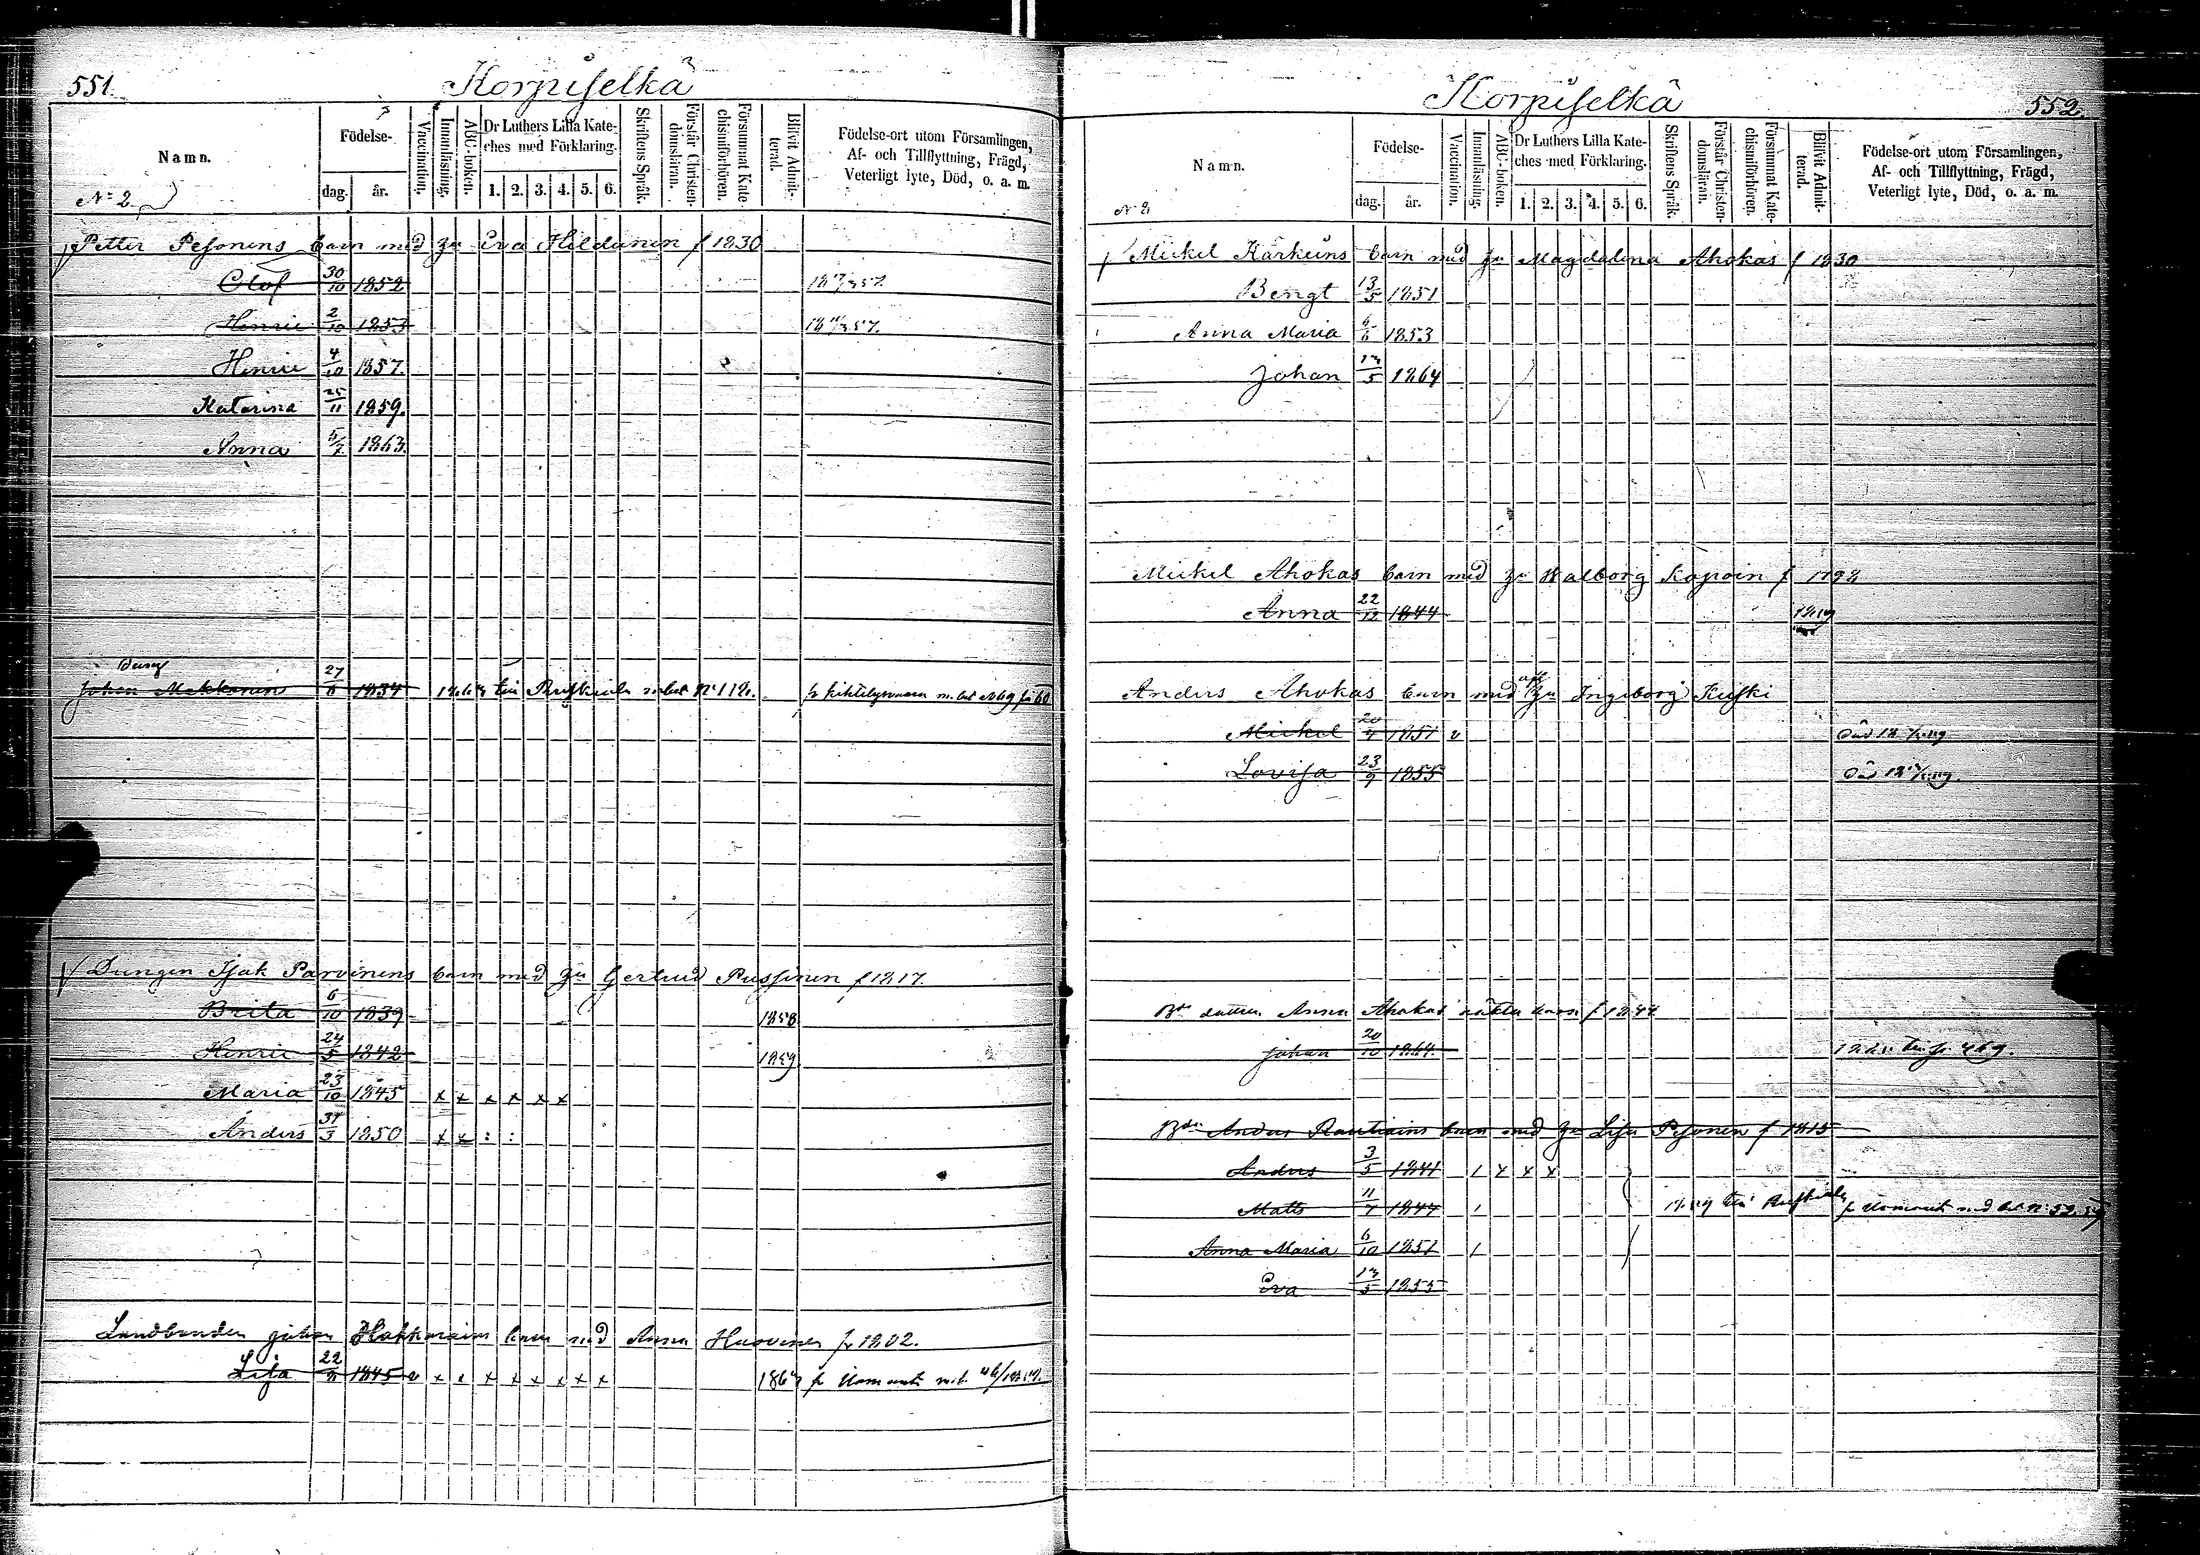 551.
Korpiselkä
Namn.
Födelse-
dag.
år.
Vaccination.
Innanläsning.
ABC-boken.
Dr Luthers Lilla Kate-
ches med Förklaring.
1. 2. 3. 4. 5. 6.
Skriftens Språk.
Förstår Christen-
domsläran.
Försummat Kate-
chismiförhören.
Blifvit Admit-
terad.
Födelse-ort utom Församlingen,
Af- och Tillflyttning, Frägd,
Veterligt lyte, Död, o. a. m.
No 2
Petter Pesonens barn med hu Eva Hildunen f 1830
Olof 30/10 1852
Henric 2/10 1853
Henric 4/10 1857.
Katarina 25/11 1859.
Anna 5/7 1863.
Dräng
Johan Makkonen 27/6 1834 till Ruskiala
Drängen Isak Parvinens barn med hu Gertrud Pussinen f 1817.
Brita 6/10 1839 1858
Henric 24/5 1842 1859
Maria 23/10 1845 x x x x x x
Anders 31/3 1850 x x : :
Landbonden Johan barn med Anna f 1802.
Lisa 22/8 1845 v x x x x x x x x
552.
Korpiselkä
Namn.
Födelse-
dag.
år.
Vaccination.
Innanläsning.
ABC-boken.
Dr Luthers Lilla Kate-
ches med Förklaring.
1. 2. 3. 4. 5. 6.
Skriftens Språk.
Förstår Christen-
domsläran.
Försummat Kate-
chismiförhören.
Blifvit Admit-
terad.
Födelse-ort utom Församlingen,
Af- och Tillflyttning, Frägd,
Veterligt lyte, Död, o. a. m.
No 2
Mickel Karkeins barn med hu Magdalena Ahokas f 1830
Bengt 13/5 1851
Anna Maria 6/6 1853
Johan 13/5 1864
Mickel Ahokas barn med hu Walborg Kopoin f 1798
Anna 22/12 1844
Anders Ahokas barn med hu Ingeborg Kuski
Mickel 20/4 1851 v Död
Lovisa 23/9 1855 Död
Bdr dottren Anna Ahokas oäkta barn f 1844
Johan 20/10 1864. till p. 469.
Bdn Anders Rautiains barn med hu Lisa Pesonen f 1815
Anders 3/5 1841
Matts 11/7 1844
Anna Maria 6/10 1851
Eva 13/5 1855